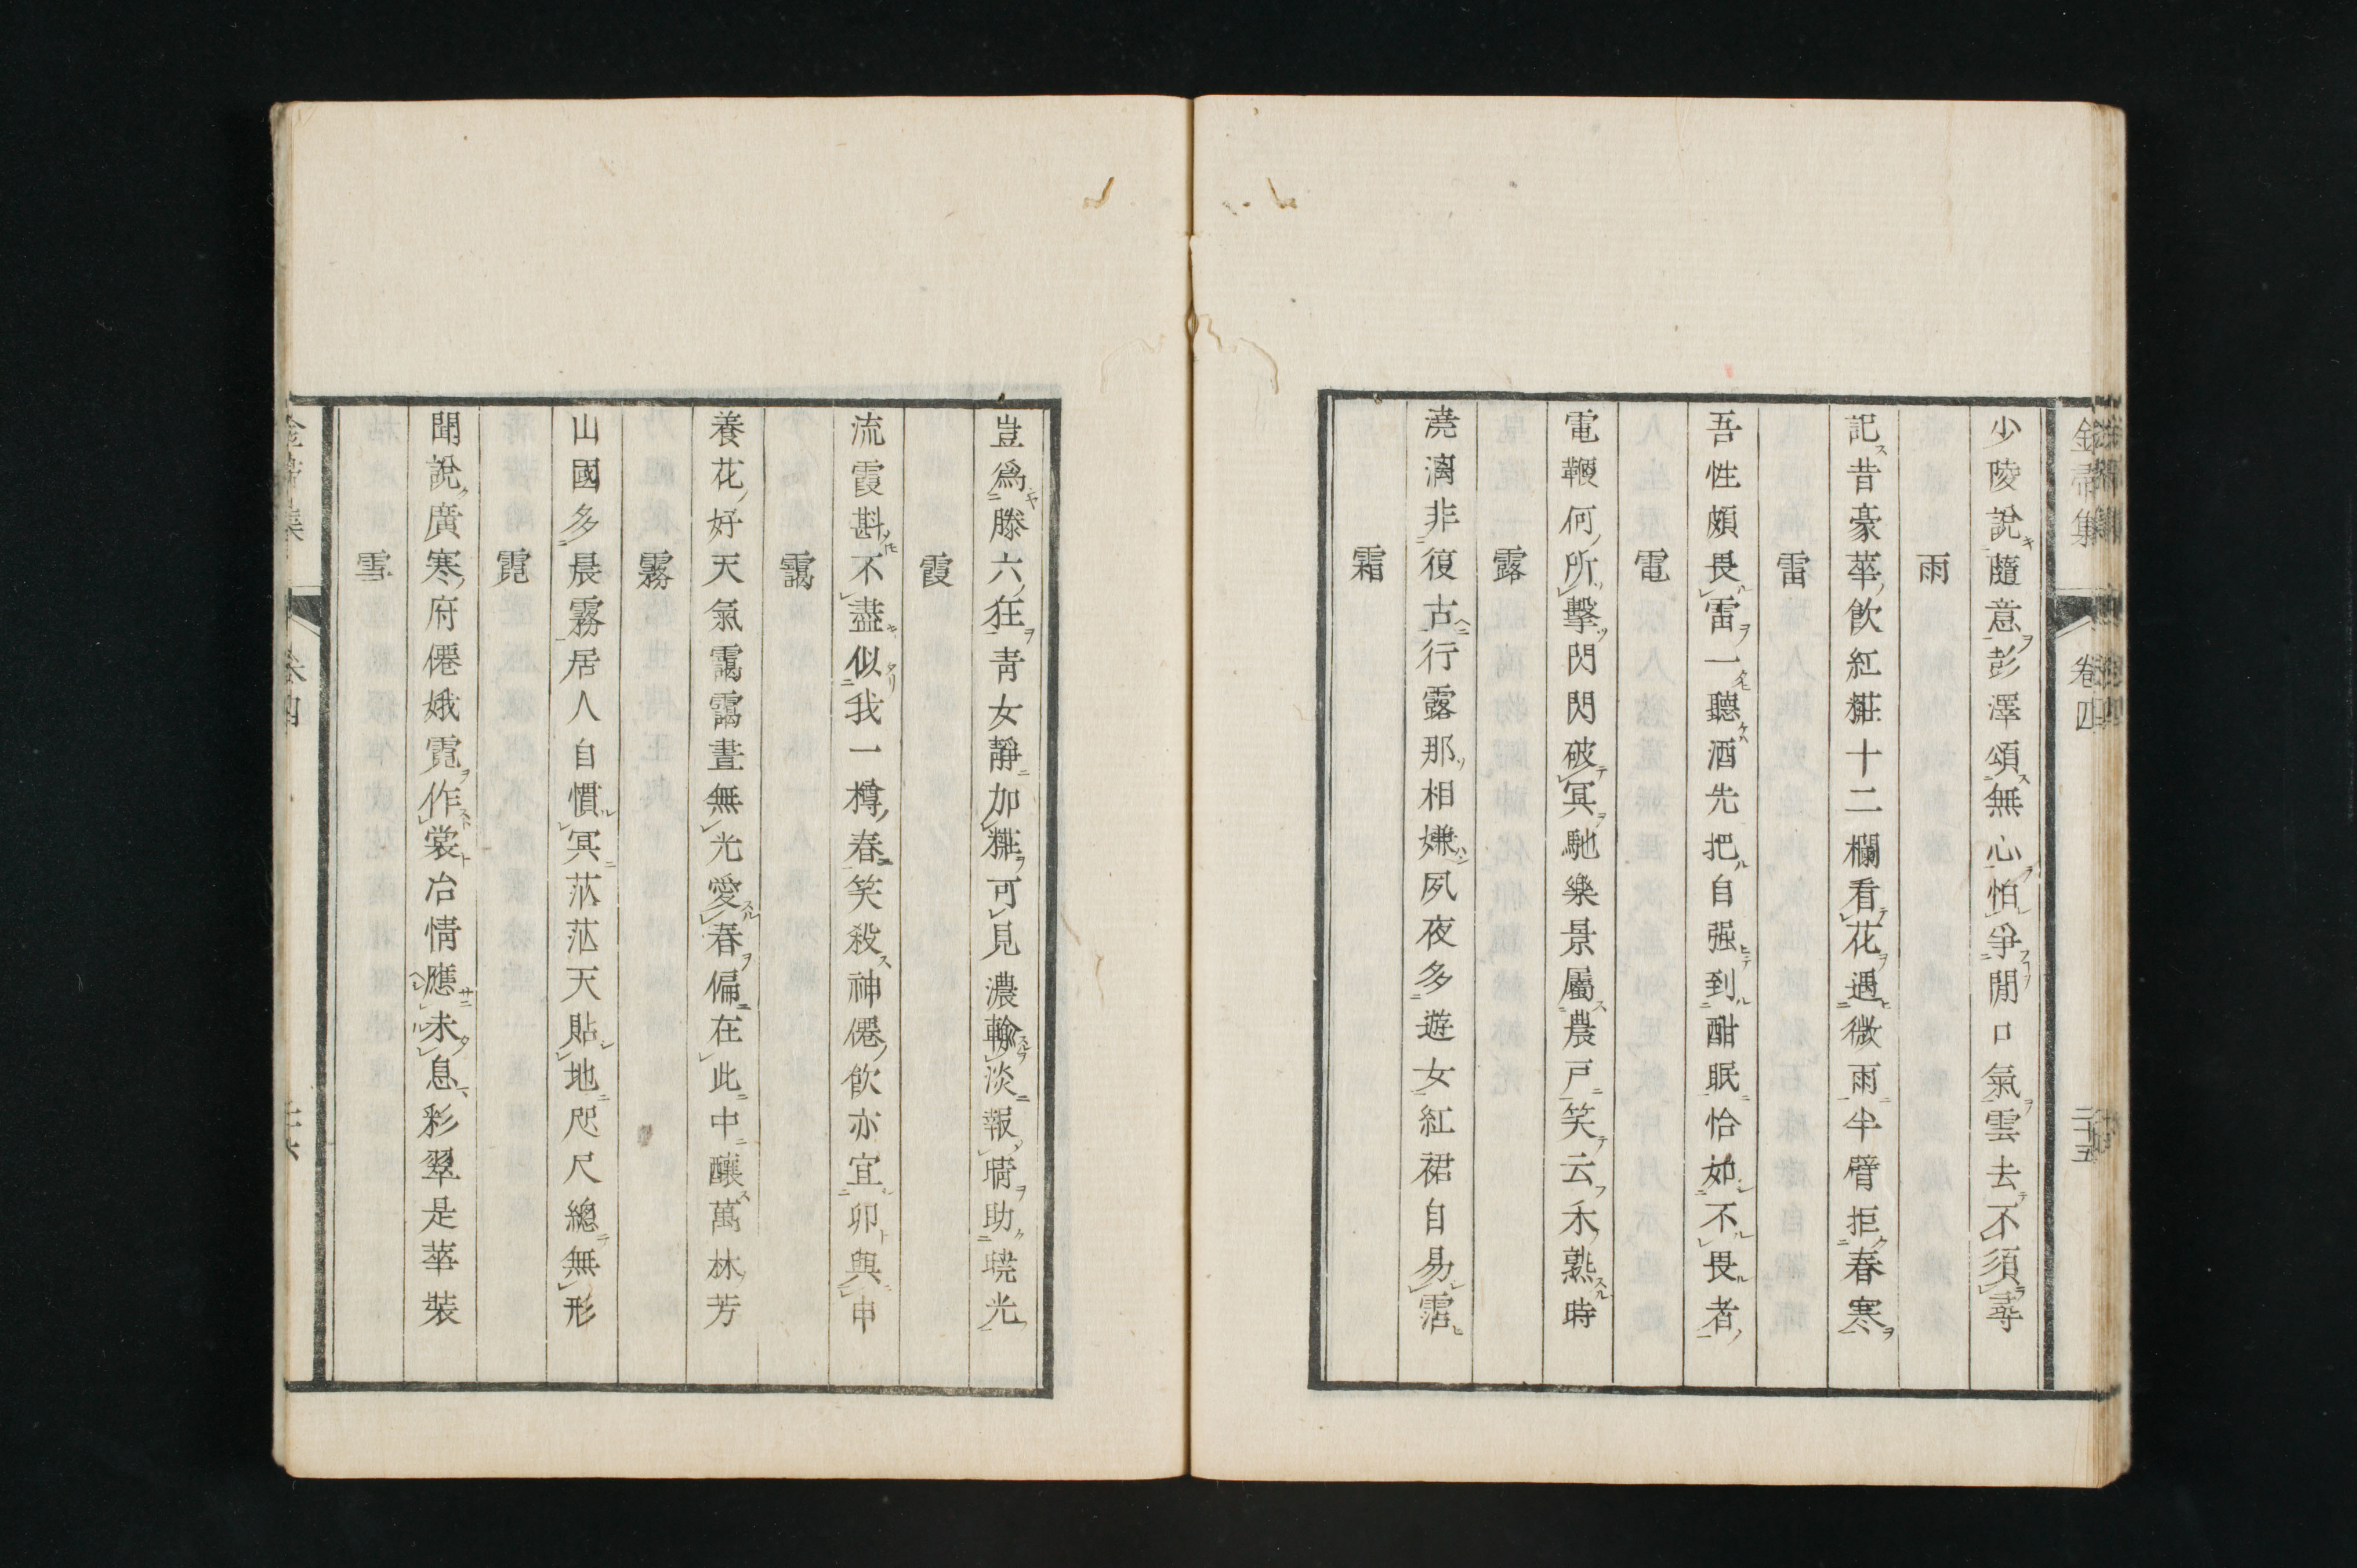 金帚集 卷四 二十五
少陵說隨意彭澤頌無心怕爭閒口氣雲去不須尋
雨
記昔豪華飮紅糚十二欄看花遇微雨半臂拒春寒
雷
吾性頗畏雷一聽酒先把自强到酣眠恰如不畏者
電
電鞭何所擊閃閃破冥馳樂景屬農戸笑云禾熟時
露
澆漓非復古行露那相嫌夙夜多遊女紅裙自易霑
霜
豈爲滕六狂靑女靜加糚可見濃輸淡報晴助曉光
霞
流霞斟不盡似我一樽春笑殺神僊飮亦宜卯與申
靄
養花好天氣靄靄晝無光愛春偏在此中釀萬林芳
霧
山國多晨霧居人自慣冥茫茫天貼地咫尺總無形
霓
聞說廣寒府僊娥霓作裳冶情應未息彩翠是華裝
雪